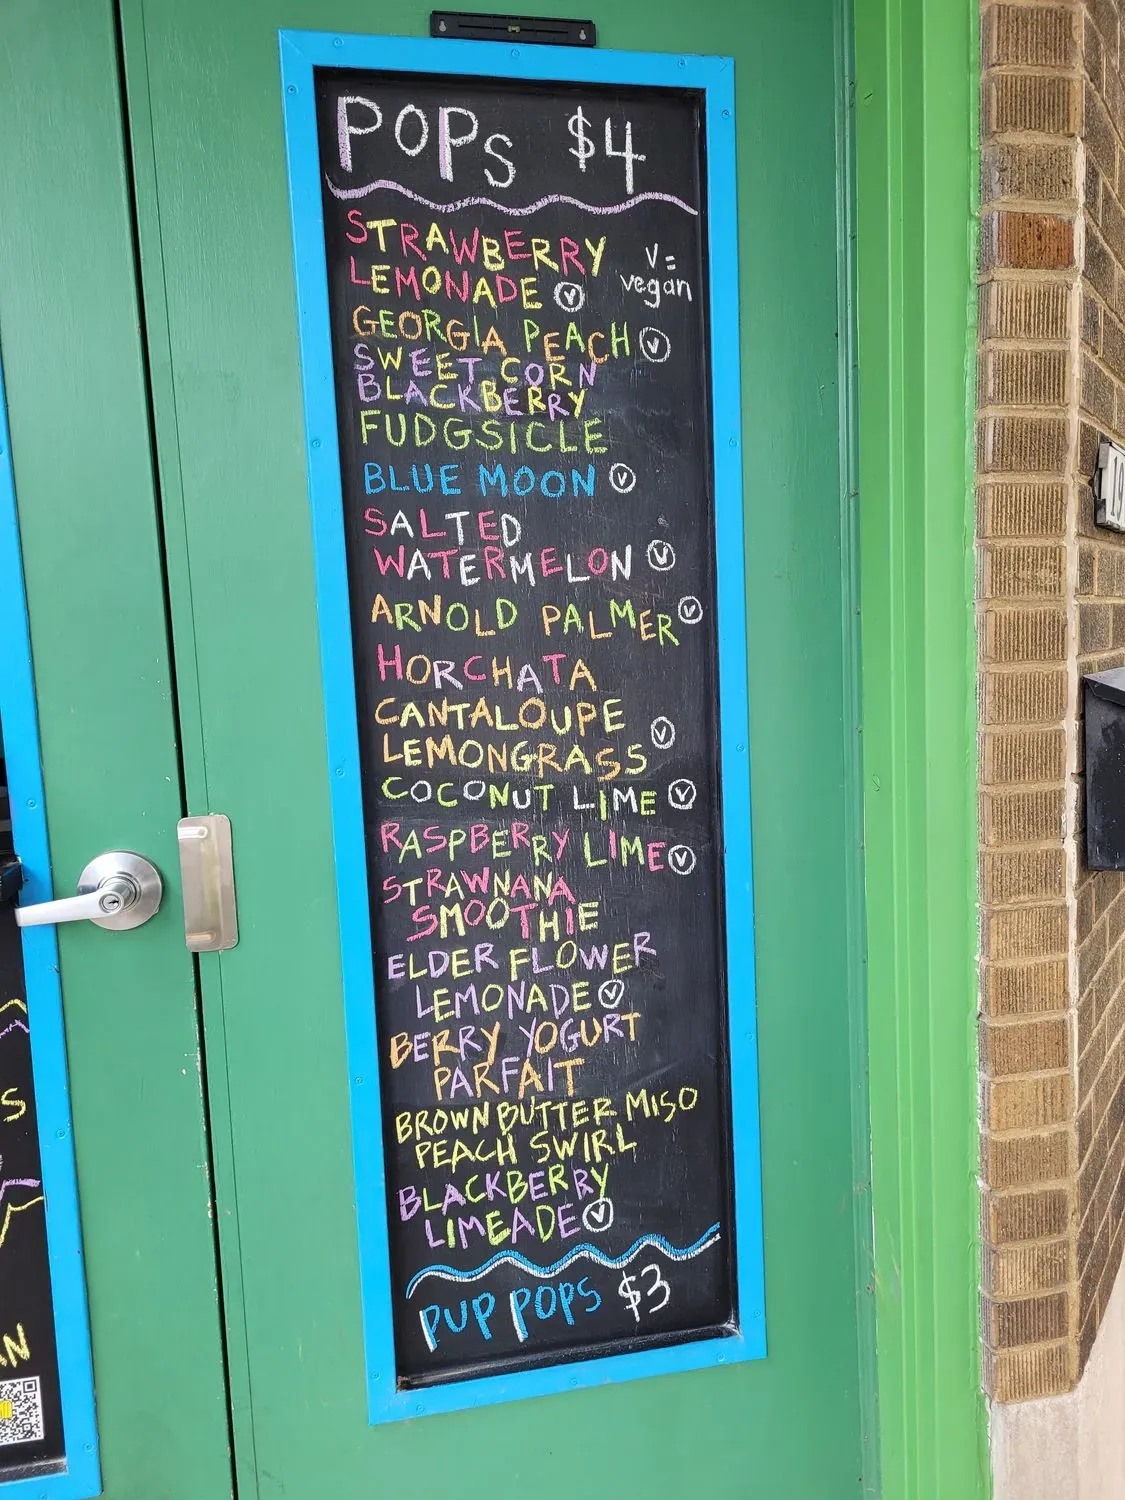 POPS $4
STRAWBERRY
LEMONADE V
V =
vegan
GEORGIA PEACH V
SWEET CORN
BLACKBERRY
FUDGSICLE
BLUE MOON V
SALTED
WATERMELON V
ARNOLD PALMER V
HORCHATA
CANTALOUPE
LEMONGRASS V
COCONUT LIME V
RASPBERRY LIME V
STRAWNANA
SMOOTHIE
ELDER FLOWER
LEMONADE V
BERRY YOGURT
PARFAIT
BROWN BUTTER MISO
PEACH SWIRL
BLACKBERRY
LIMEADE V
PUP POPS $3